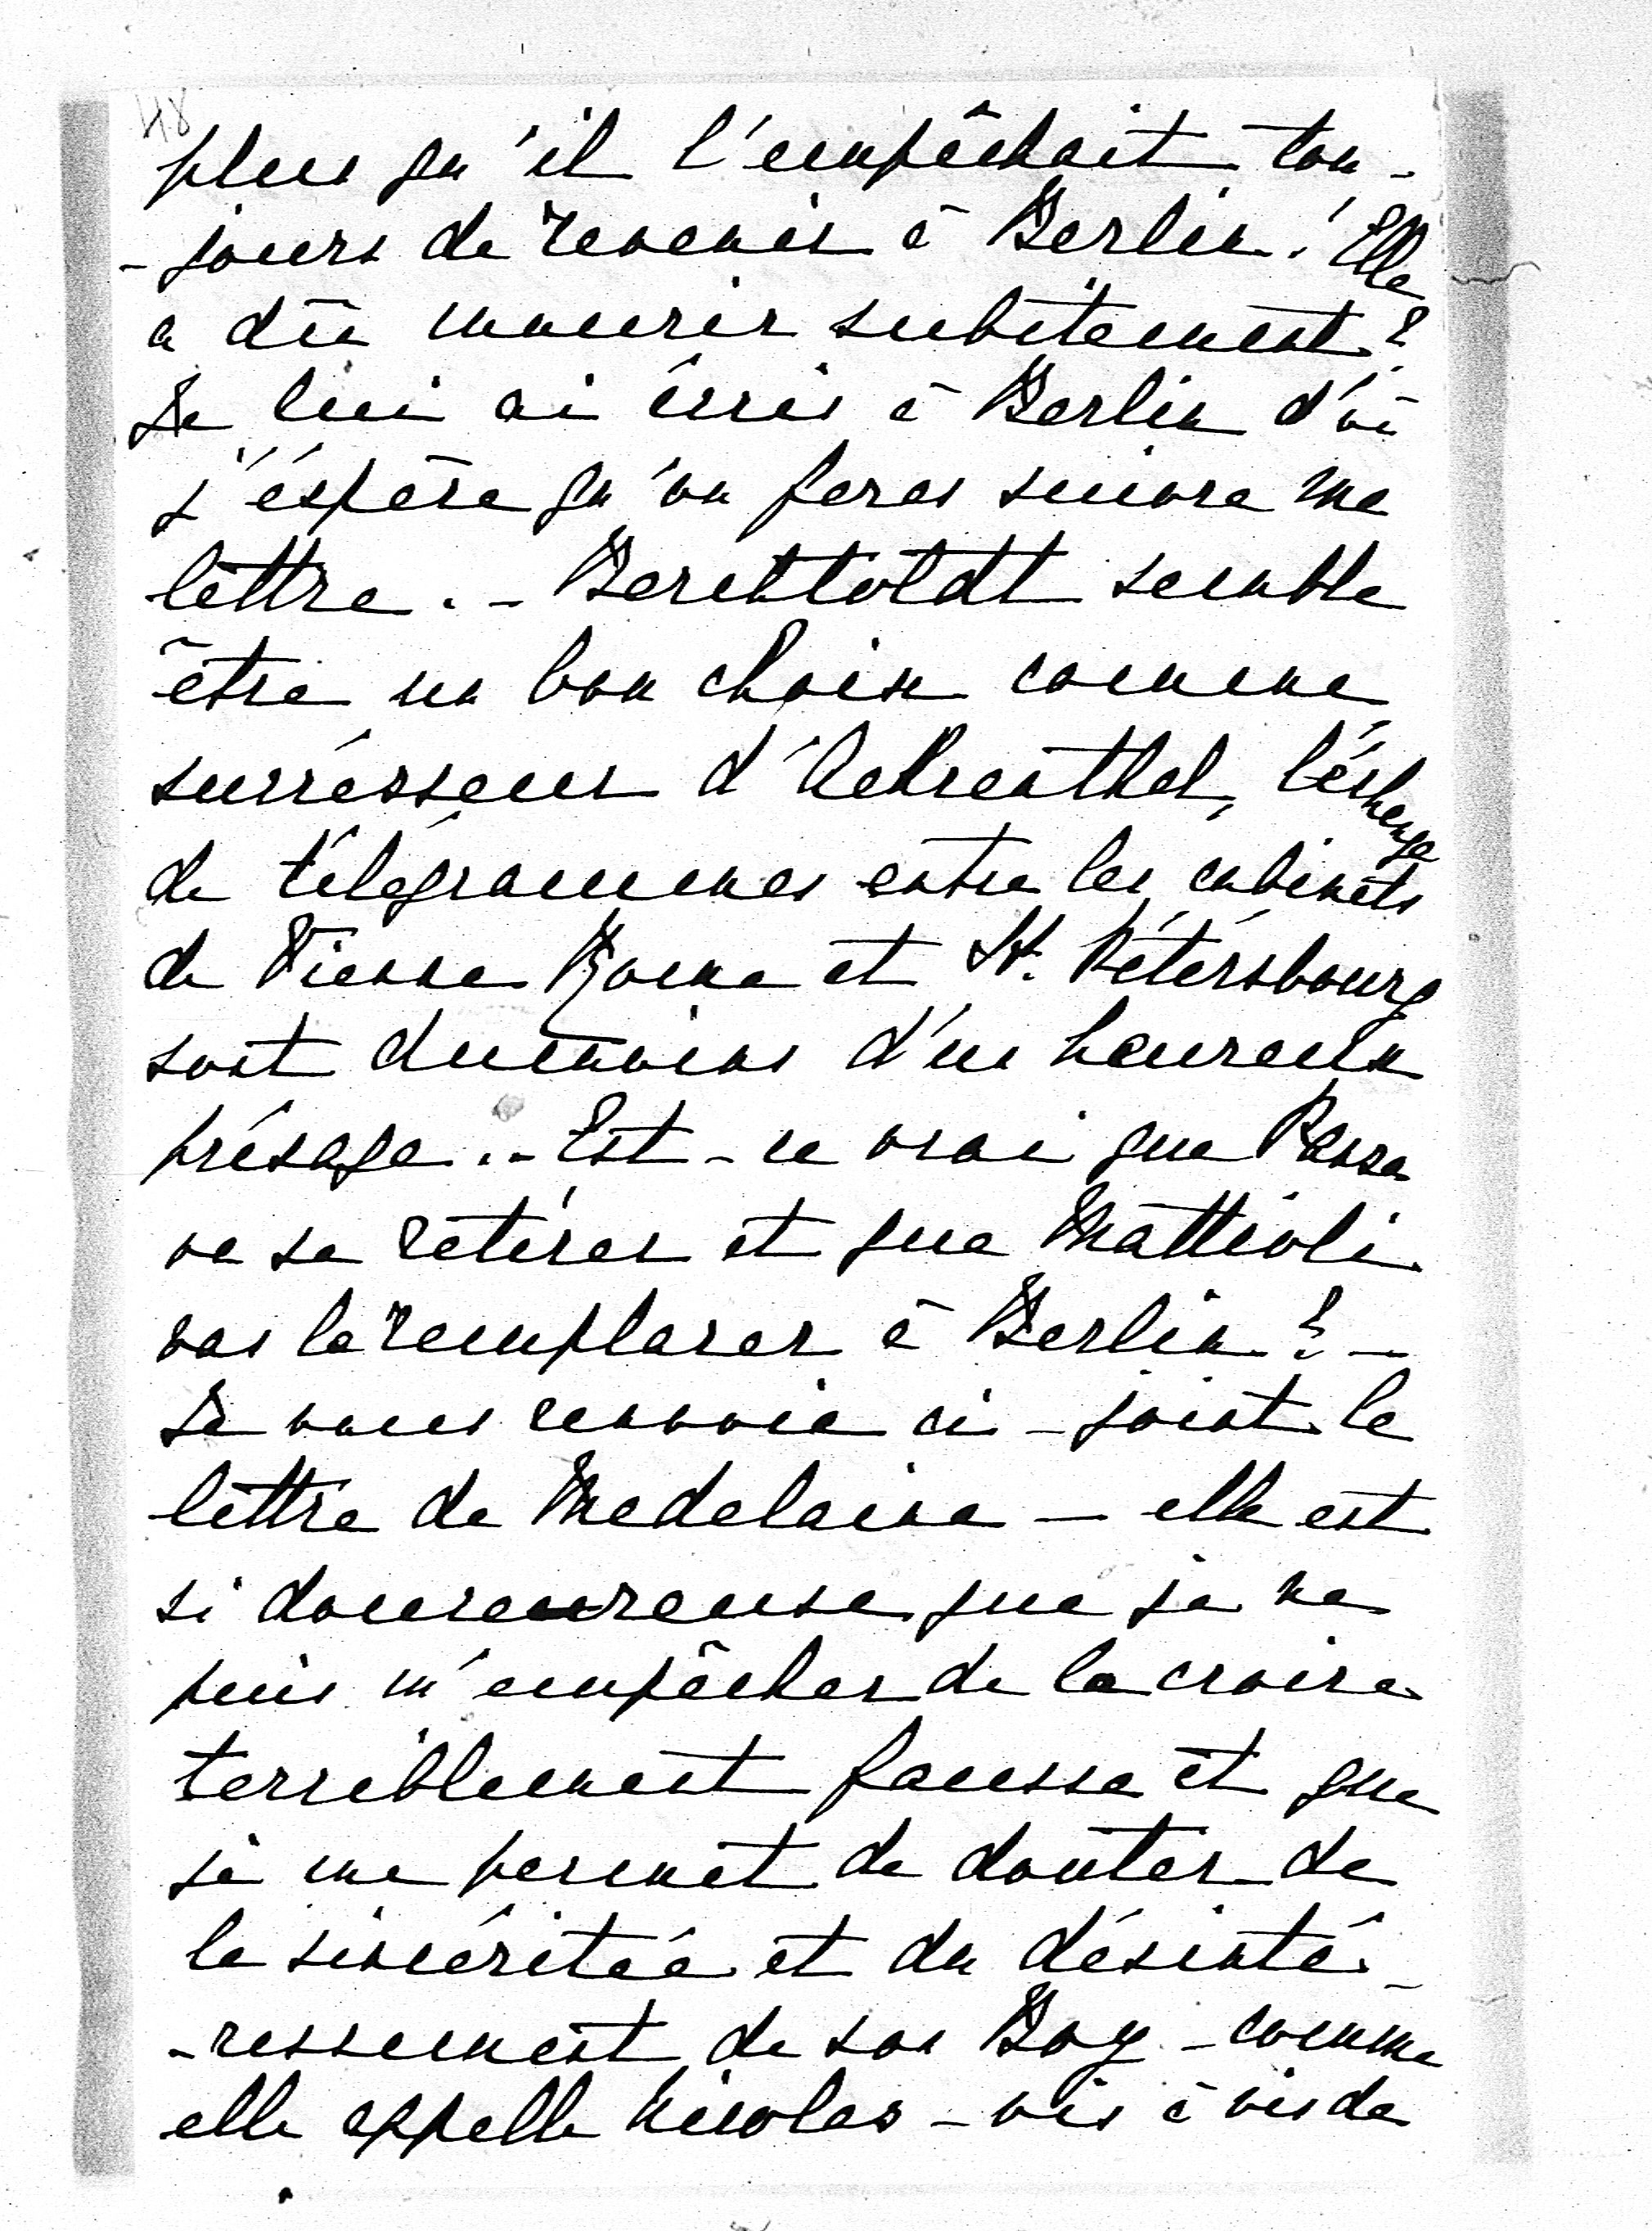 48
plus qu'il l'empêchait tou-
-jours de revenir à Berlin! Elle
a dû mourir subitement?
Je lui ai écris à Berlin d'où
j'éspère qu'on feras suivre ma
lettre. - Berchtoldt semble
être un bon choix comme
successeur d'Aehrenthal, l'échange
de télégrammes entre les cabinets
de Vienne Rome et St. Pétérsbourg
sont dumoins d'un heureux
présage. - Est-ce vrai que Pansa
va se retirer et que Mattioli
vas le remplacer à Berlin? -
Je vous renvoie ci-joint la
lettre de Madelaine - elle est
si doucereureuse que je ne
puis m'empêcher de la croire
terriblement fausse et que
je me permet de douter de
la sincéritée et du désinté-
-ressement de son Boy - comme
elle appelle Nicolas - vis à vis de